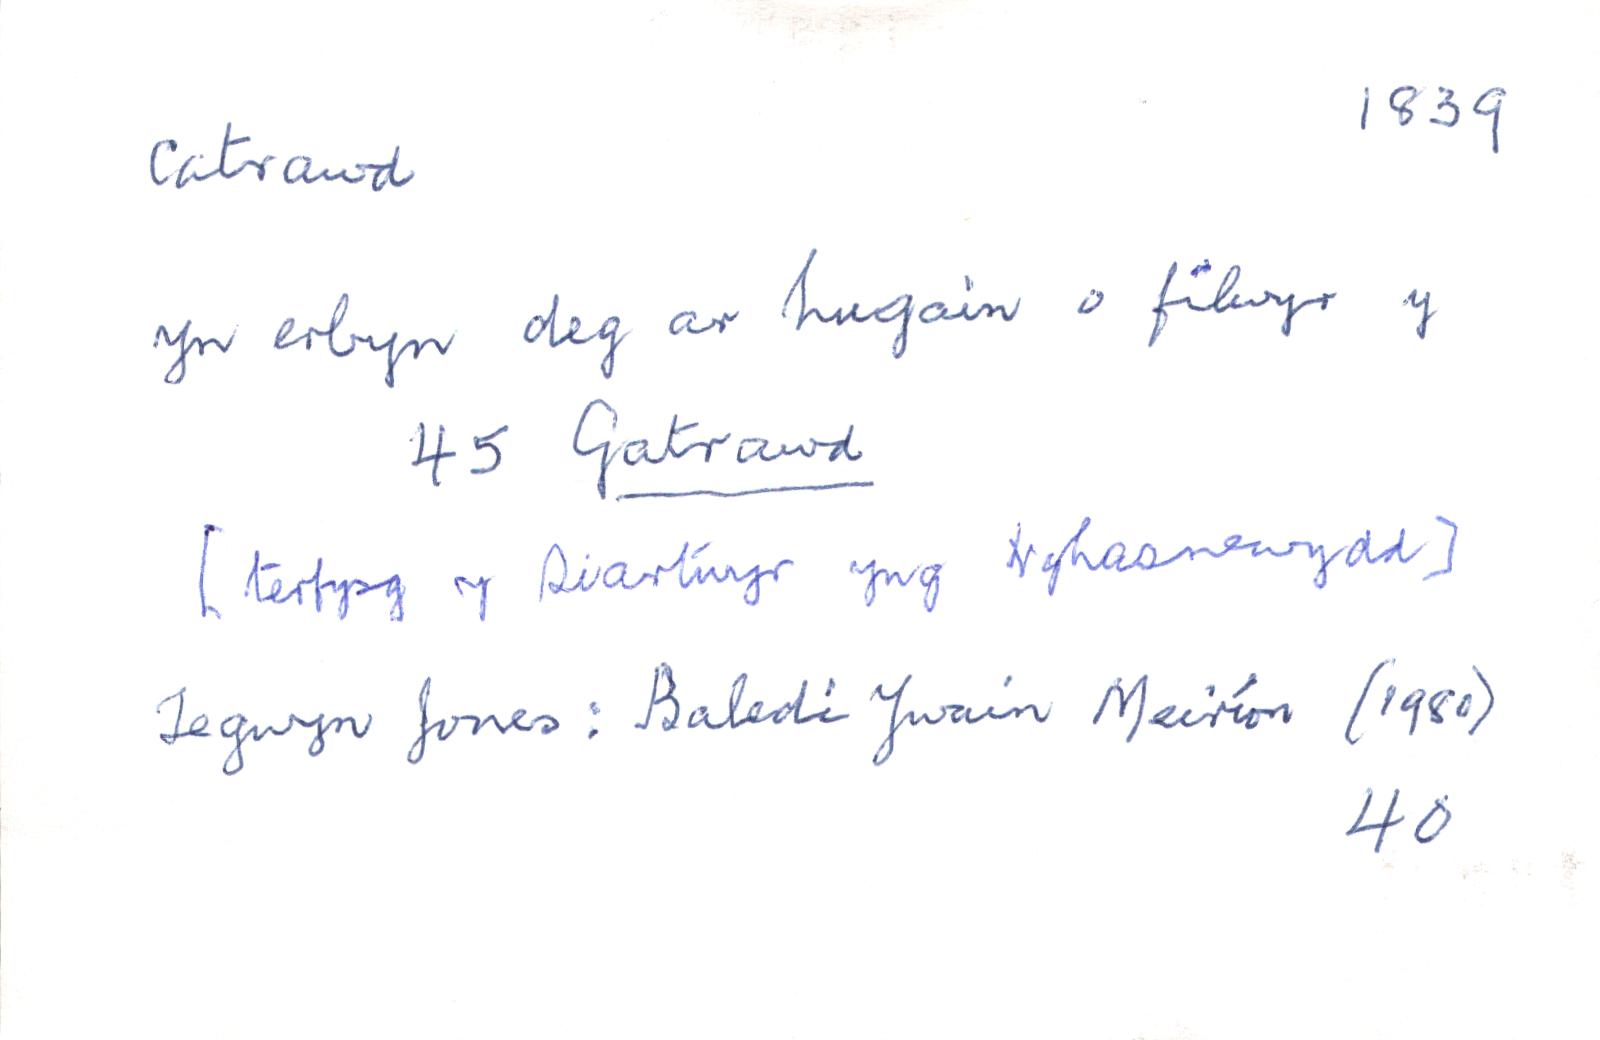 1839
Catrawd
yn erbyn deg ar hugain o filwyr y
45 Gatrawd
[terfysg y Siartwyr yng Nghasnewydd]
Tegwyn Jones: Baledi Ywain Meirion (1980)
40